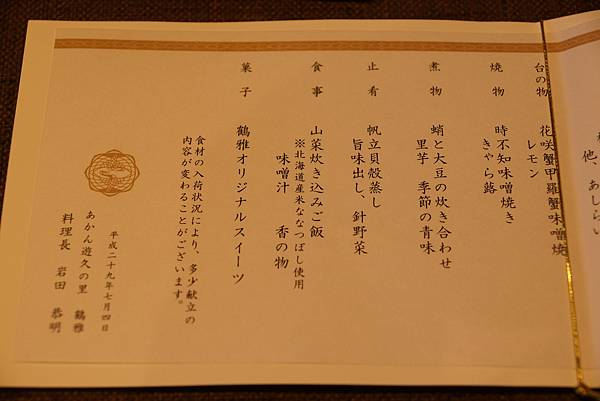 他、あしらい
台の物
花咲蟹甲羅蟹味噌焼
レモン
焼物
時不知味噌焼き
きゃら蕗
煮物
蛸と大豆の炊き合わせ
里芋 季節の青味
止肴
帆立貝殻蒸し
旨味出し、針野菜
食事
山菜炊き込みご飯
※北海道産米ななつぼし使用
味噌汁 香の物
菓子
鶴雅オリジナルスイーツ
食材の入荷状況により、多少献立の
内容が変わることがございます。
平成二十九年七月四日
あかん遊久の里 鶴雅
料理長 岩田 恭明